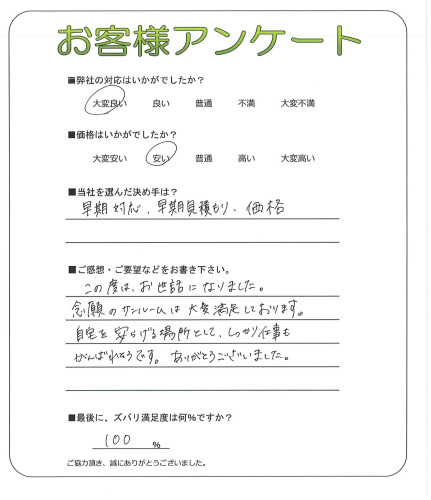 お客様アンケート
■弊社の対応はいかがでしたか？
大変良い 良い 普通 不満 大変不満
■価格はいかがでしたか？
大変安い 安い 普通 高い 大変高い
■当社を選んだ決め手は？
早期対応、早期見積もり、価格
■ご感想・ご要望などをお書き下さい。
この度は、お世話になりました。
念願のサンルームは大変満足しております。
自宅を安らげる場所として、しっかり仕事も
がんばれそうです。ありがとうございました。
■最後に、ズバリ満足度は何%ですか？
100 %
ご協力頂き、誠にありがとうございました。